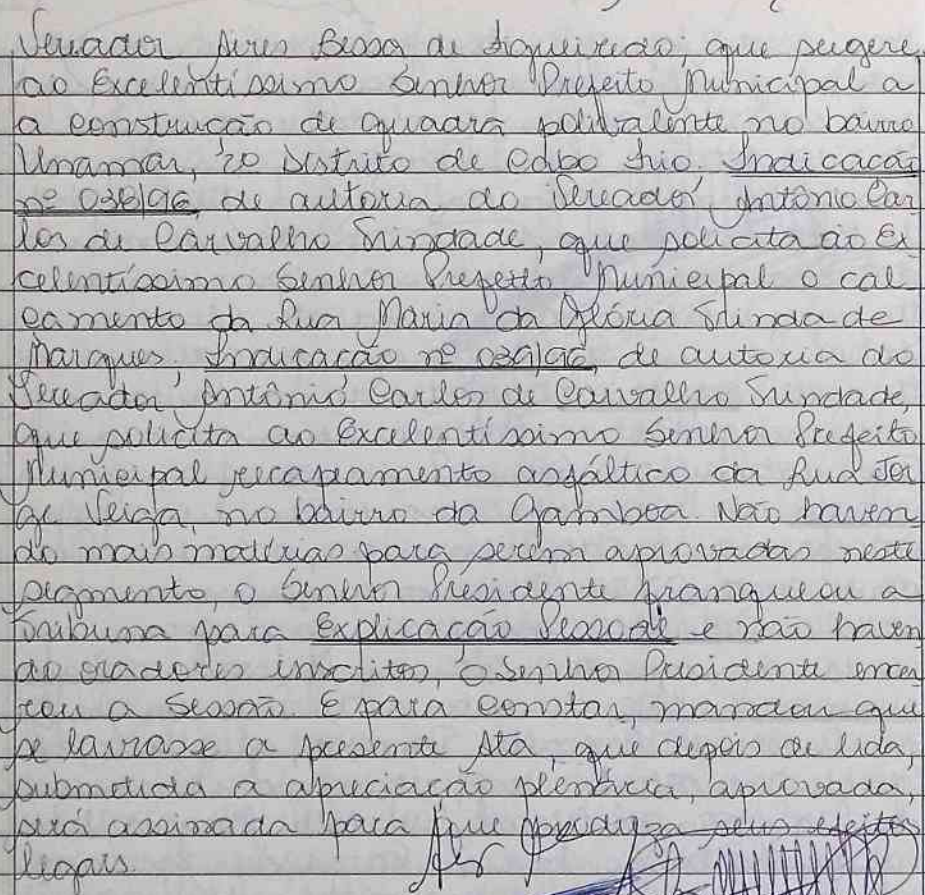 Vereador Aires Bessa de Figueiredo, que sugere
ao Excelentíssimo Senhor Prefeito Municipal a
a construção de quadra polivalente no bairro
Unamar, 2º Distrito de Cabo Frio. Indicação
nº 038/96, de autoria do Vereador Antônio Car
los de Carvalho Trindade, que solicita ao Ex
celentíssimo Senhor Prefeito Municipal o cal
çamento da Rua Maria da Glória Trindade
Marques. Indicação nº 039/96, de autoria do
Vereador Antônio Carlos de Carvalho Trindade,
que solicita ao Excelentíssimo Senhor Prefeito
Municipal recapeamento asfáltico da Rua Jor
ge Veiga, no bairro da Gamboa. Não haven
do mais matérias para serem aprovadas neste
segmento, o Senhor Presidente franqueou a
Tribuna para Explicação Pessoal e não haven
do oradores inscritos, o Senhor Presidente encer
rou a Sessão. E para constar, mandou que
se lavrasse a presente Ata, que depois de lida,
submetida a apreciação plenária, aprovada,
será assinada para que produza seus efeitos
legais.